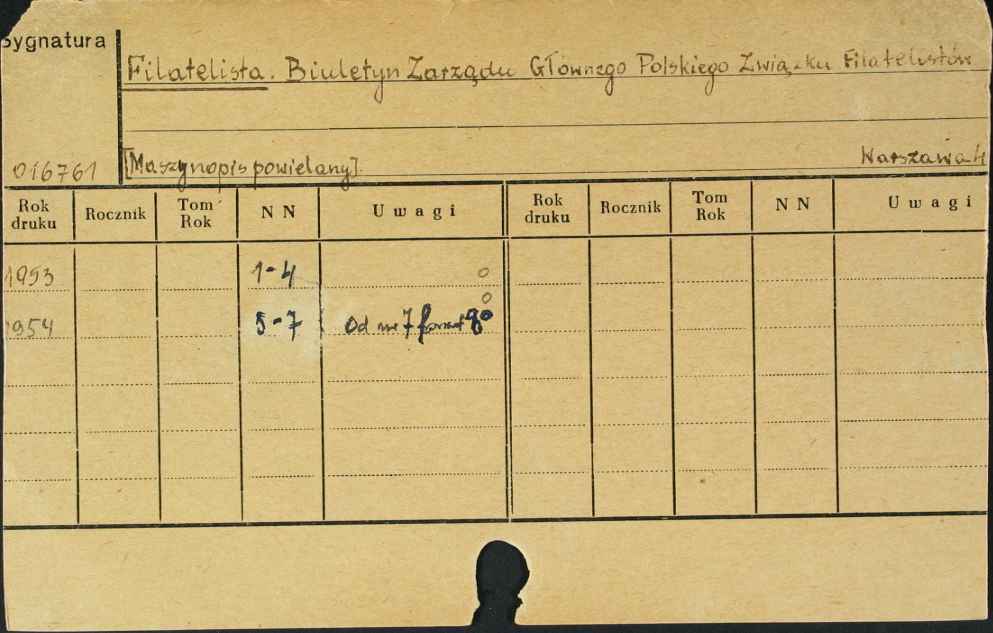 Sygnatura
Filatelista. Biuletyn Zarządu Głównego Polskiego Związku Filatelistów
016761 [Maszynopis powielany] Warszawa 4
Rok druku Rocznik Tom Rok N N Uwagi Rok druku Rocznik Tom Rok N N Uwagi
1953 1-4 o
o
1954 5-7 Od nr 7 format 8o